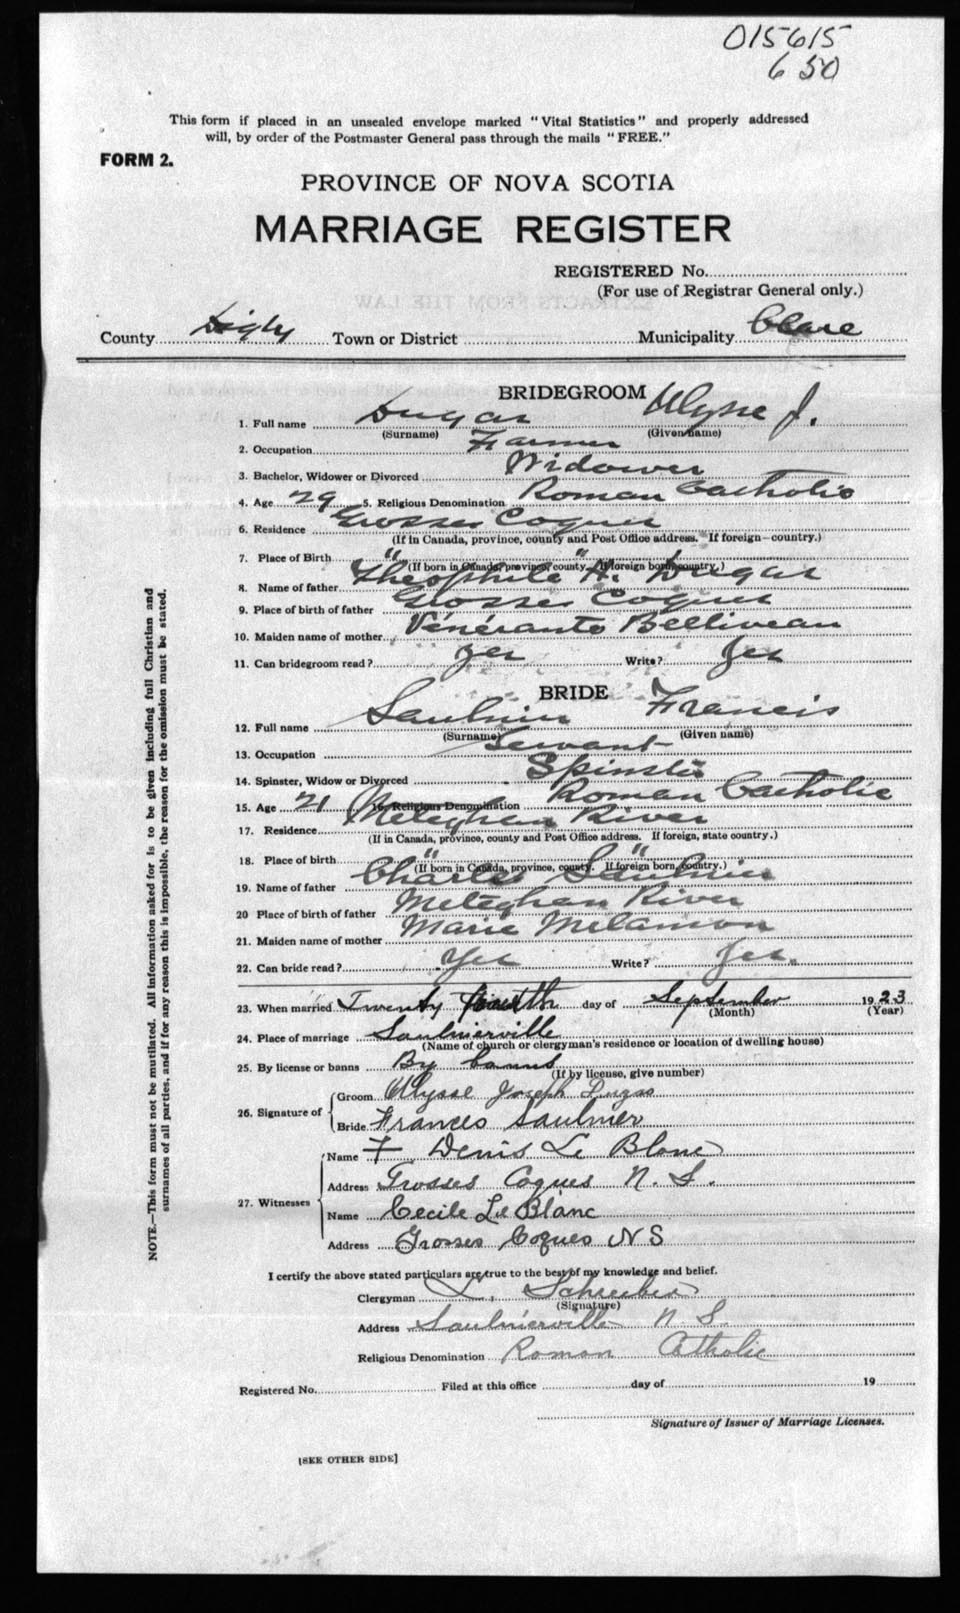 015615
6 50
This form if placed in an unsealed envelope marked "Vital Statistics" and properly addressed
will, by order of the Postmaster General pass through the mails "FREE."
FORM 2.
PROVINCE OF NOVA SCOTIA
MARRIAGE REGISTER
REGISTERED No.
(For use of Registrar General only.)
County Digby Town or District Municipality Clare
BRIDEGROOM
1. Full name Dugas Ulysse J.
(Surname) (Given name)
2. Occupation Farmer
3. Bachelor, Widower or Divorced Widower
4. Age 29 5. Religious Denomination Roman Catholic
6. Residence Grosses Coques
(If in Canada, province, county and Post Office address. If foreign—country.)
7. Place of Birth " "
(If born in Canada, province, county. If foreign born, country.)
8. Name of father Theophile H. Dugas
9. Place of birth of father Grosses Coques
10. Maiden name of mother Vénérante Belliveau
11. Can bridegroom read? Yes Write? Yes
BRIDE
12. Full name Saulnier Francis
(Surname) (Given name)
13. Occupation Servant
14. Spinster, Widow or Divorced Spinster
15. Age 21 16. Religious Denomination Roman Catholic
17. Residence Meteghan River
(If in Canada, province, county and Post Office address. If foreign, state country.)
18. Place of birth " "
(If born in Canada, province, county. If foreign born, country.)
19. Name of father Charles Saulnier
20 Place of birth of father Meteghan River
21. Maiden name of mother Marie Melanson
22. Can bride read? Yes Write? Yes.
23. When married Twenty fourth day of September 1923
(Month) (Year)
24. Place of marriage Saulnierville
(Name of church or clergyman's residence or location of dwelling house)
25. By license or banns By banns
(If by license, give number)
26. Signature of Groom Ulysse Joseph Dugas
Bride Frances Saulnier
27. Witnesses Name F Denis Le Blanc
Address Grosses Coques N. S.
Name Cecile Le Blanc
Address Grosses Coques N S
I certify the above stated particulars are true to the best of my knowledge and belief.
Clergyman
(Signature)
Address Saulnierville N. S.
Religious Denomination Roman Catholic
Registered No. Filed at this office day of 19
Signature of Issuer of Marriage Licenses.
[SEE OTHER SIDE]
NOTE.—This form must not be mutilated. All information asked for is to be given including full Christian and
surnames of all parties, and if for any reason this is impossible, the reason for the omission must be stated.